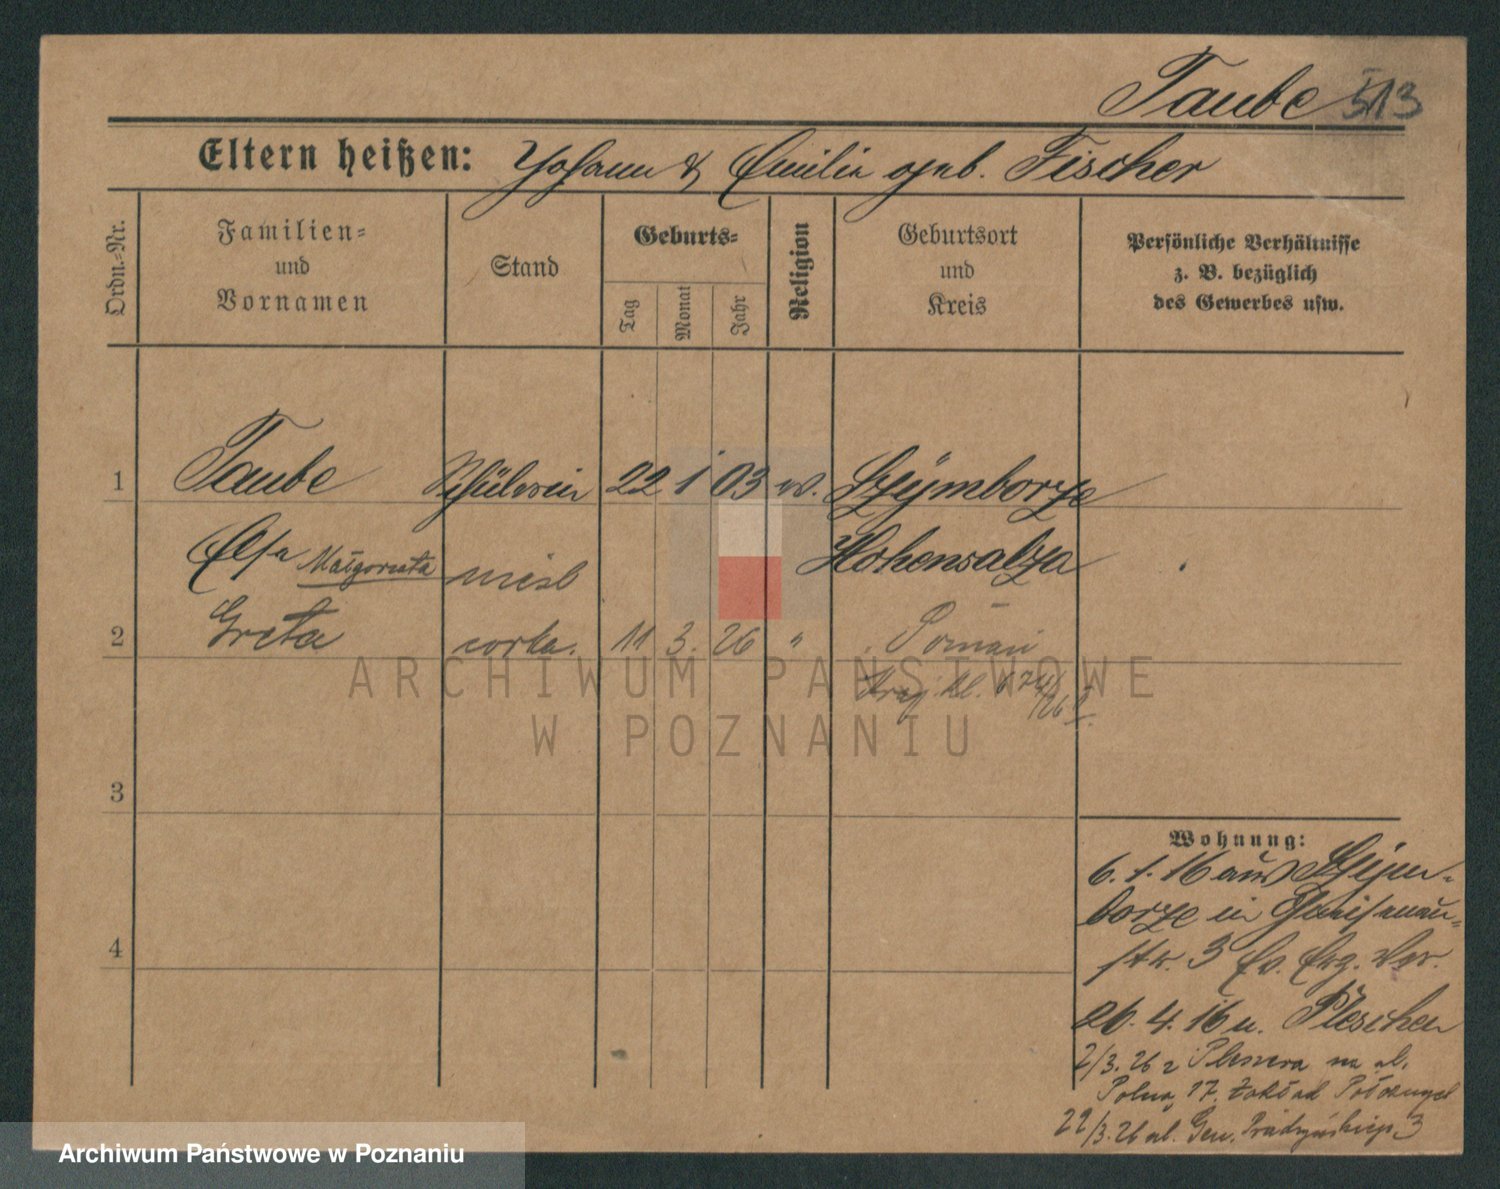 Taube 513
Eltern heißen: Johann & Emilia geb. Fischer
Ordn.-Nr.
Familien-
und
Vornamen
Stand
Geburts-
Tag
Monat
Jahr
Religion
Geburtsort
und
Kreis
Persönliche Verhältnisse
z. B. bezüglich
des Gewerbes usw.
1 Taube Schülerin 22 1 03 ev. Szymborze
Elsa Małgorzata Hohensalza
2 Greta corka. 11 3. 26 " Poznań
ARCHIWUM PAŃSTWOWE
W POZNANIU
3
4
Wohnung:
6. 1. 16 aus Szym-
borze in Gneisenau-
str. 3 Ev. Erz. Ver.
26. 4. 16 n. Pleschen
2/3. 26 z Pleszewa na ul.
Polną 17. Zakład Położnych
22/3. 26 ul. Gen. Prądzyńskiego 3
Archiwum Państwowe w Poznaniu